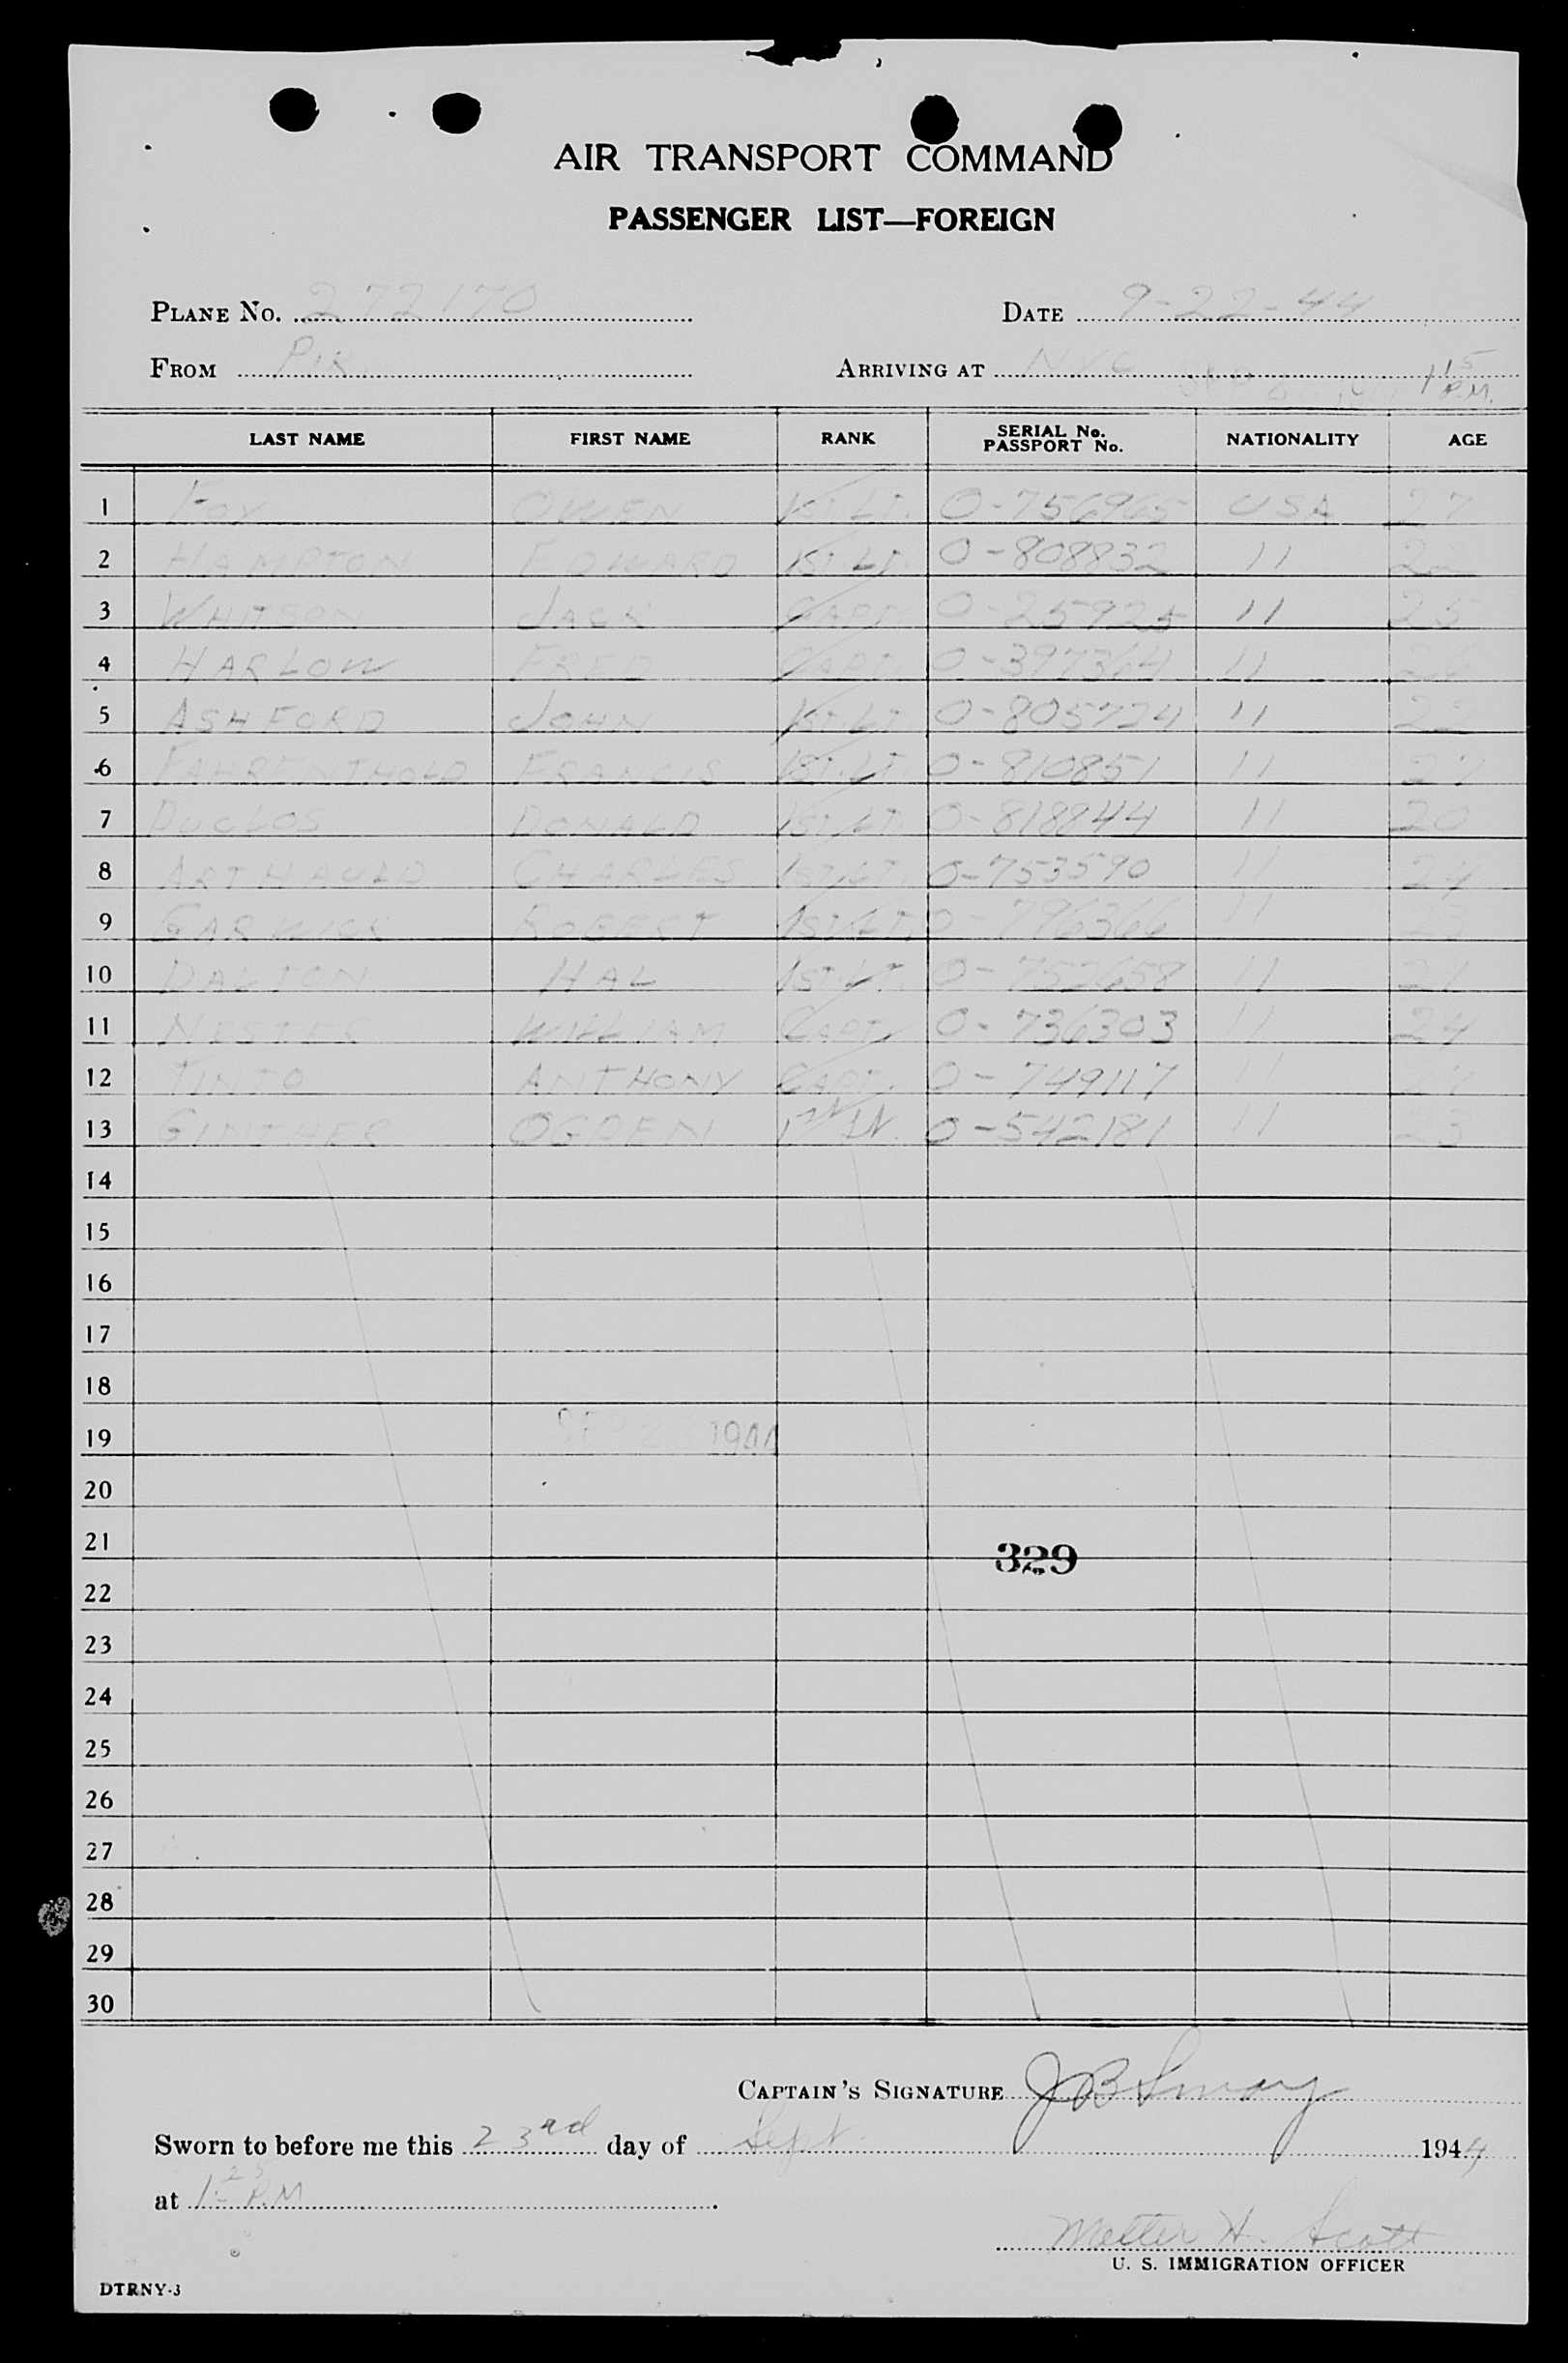 AIR TRANSPORT COMMAND
PASSENGER LIST—FOREIGN
PLANE No. 272170 DATE 9-22-44
FROM PIK ARRIVING AT NYC 1 15 P.M.
LAST NAME FIRST NAME RANK SERIAL No. PASSPORT No. NATIONALITY AGE
1 FOY OWEN 1ST LT. O-756965 USA 27
2 HAMPTON EDWARD 1ST LT. O-808832 11 22
3 WHITSON JACK CAPT. O-25925 11 25
4 HARLOW FRED CAPT. O-397364 11 26
5 ASHFORD JOHN 1ST LT. O-805724 11 22
6 FAHRENTHOLD FRANCIS 1ST LT. O-810851 11
7 DUCLOS DONALD 1ST LT. O-818844 11 20
8 ARTHAULD CHARLES 1ST LT. O-753590 11 24
9 GARWICK ROBERT 1ST LT. O-796366 11 23
10 DALTON HAL 1ST LT. O-752658 11 21
11 NESTER WILLIAM CAPT. O-736303 11 24
12 TINTO ANTHONY CAPT. O-749117 11
13 GINTHER OGDEN O-542181 11 23
14
15
16
17
18
19 SEP 1944
20
21
329
22
23
24
25
26
27
28
29
30
CAPTAIN'S SIGNATURE
Sworn to before me this 23rd day of Sept. 1944
at 1 25 P.M.
Walter H. Scott
U. S. IMMIGRATION OFFICER
DTRNY-3